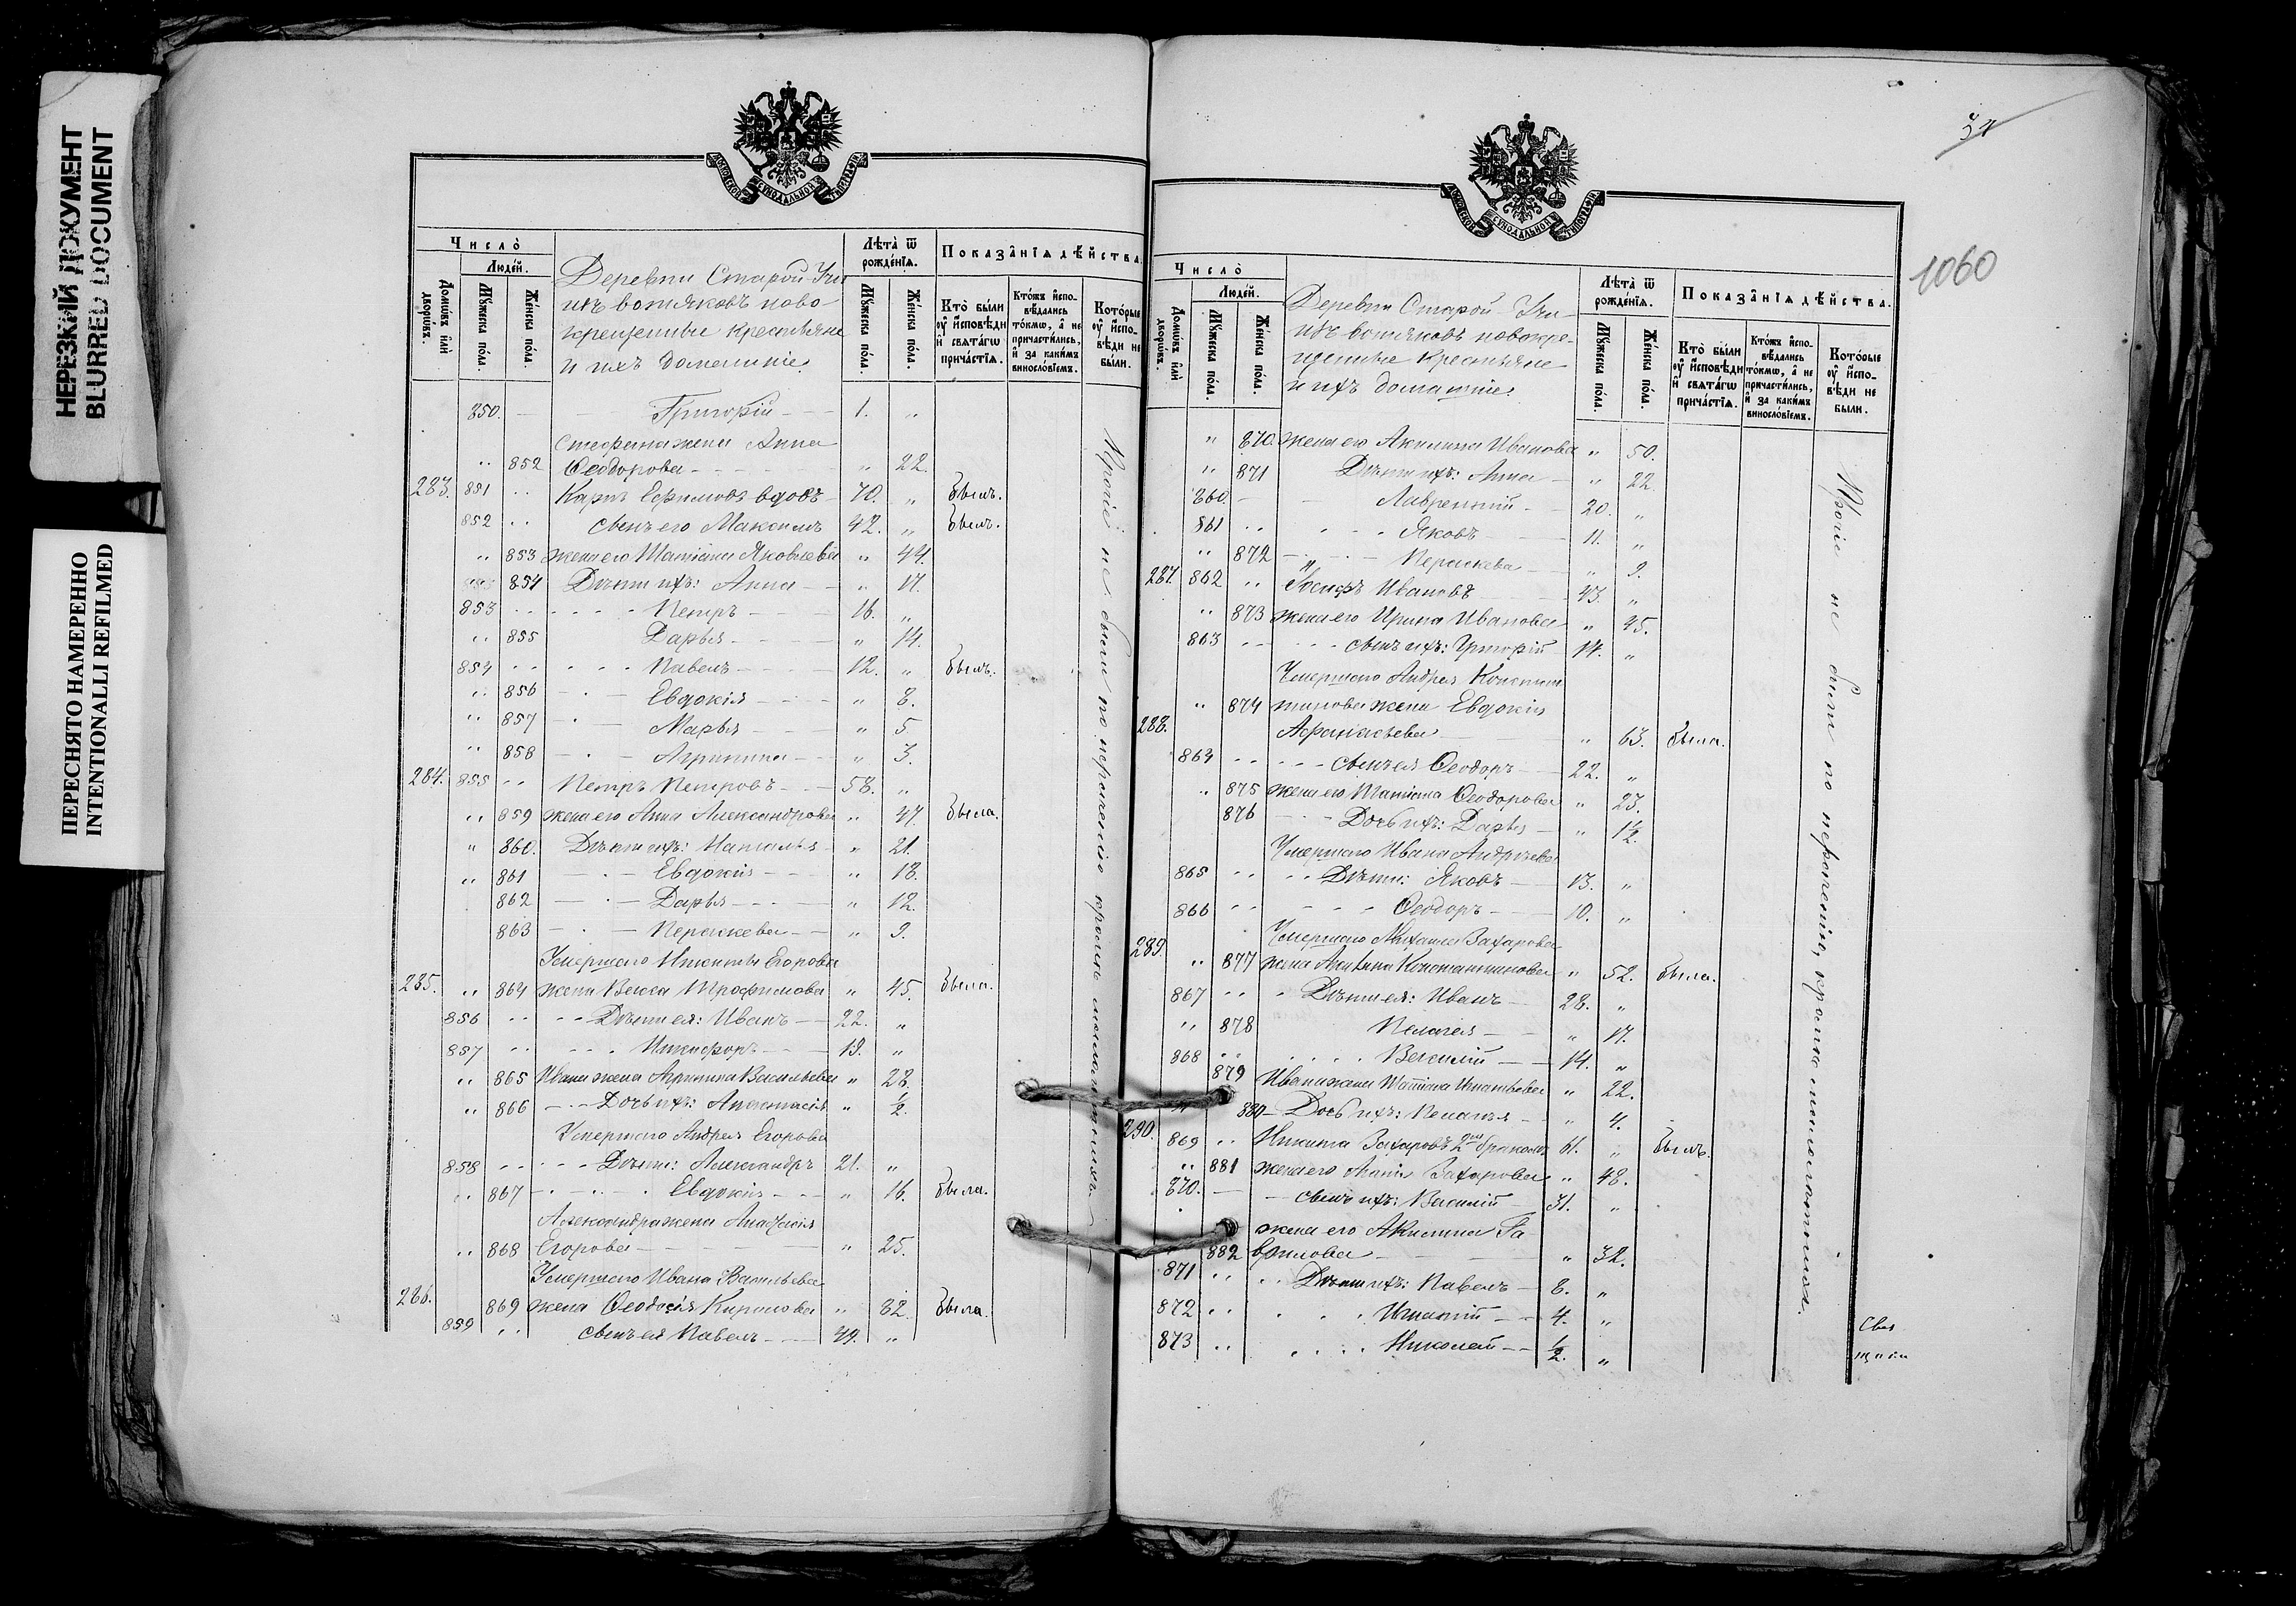 НЕРЕЗКИЙ ДОКУМЕНТ
BLURRED DOCUMENT
ПЕРЕСНЯТО НАМЕРЕННО
INTENTIONALLI REFILMED
Число̀
Людей.
Домѡвъ и҆лѝ дворѡвъ.
Мꙋжеска по́ла.
Же́нска по́ла.
Деревни Старой Учи
изъ вотяковъ ново-
крещенные крестьяне
и ихъ домашніе.
Лѣта̀ ѿ рожде́нїѧ.
Мꙋжеска по́ла.
Же́нска по́ла.
Показа̑нїѧ дѣ́йства.
Кто̀ бы́ли оу҆ и҆сповѣди и҆ свѧта́гѡ прича́стїѧ.
Кто́жъ и҆спо- вѣдались то́кмѡ, а҆ не причасти́лись, и҆ за каки́мъ винослові́емъ.
Кото́рые оу҆ и҆спо- вѣди не бы́ли.
350. — Григорій — 1. „
Стефана жена Анна
„ 852 Ѳеодорова — „ 22.
283. 851 „ Карпъ Ефимовъ вдовъ — 70. „ былъ.
852 „ сынъ его Максимъ 42. „ былъ.
„ 853 жена его Татіана Яковлева „ 44.
854 Дѣти ихъ: Анна — „ 17.
853 „ Петръ — 16. „
„ 855 Дарья — „ 14.
854 „ Павелъ — 12. „ былъ.
„ 856 Евдокія — „ 8.
„ 857 Марья — „ 5
„ 858 Агрипина — „ 3.
284. 855 „ Петръ Петровъ — 58. „
„ 859 жена его Анна Александрова „ 47. была.
„ 860. Дѣти ихъ: Наталья — „ 21.
„ 861 Евдокія — „ 18.
862 Дарья — „ 12.
863 Параскева — „ 9.
Умершаго Никиты Егорова
285. „ 864 жена Васса Трофимова „ 45. была.
856 „ Дѣти ея: Иванъ — 22. „
857 „ Никифоръ — 19. „
„ 865 Ивана жена Агрипина Васильева „ 28.
„ 866 — Дочь ихъ: Анастасія „ ½.
Умершаго Андрея Егорова
858 „ Дѣти: Александръ 21. „
„ 867 Евдокія — „ 16. была.
Александра жена
„ 868 Егорова — „ 25.
Умершаго Ивана Васильева
286. 869 жена Ѳеодосія Кирилова „ 82. была.
859 „ сынъ ея Павелъ — 49. „
Прочіе не были по нераченію кромѣ малолѣтнихъ.
1060
Число̀
Людей.
Домѡвъ и҆лѝ дворѡвъ.
Мꙋжеска по́ла.
Же́нска по́ла.
Деревни Старой Учи-
изъ вотяковъ новокре-
щенные крестьяне
и ихъ домашніе.
Лѣта̀ ѿ рожде́нїѧ.
Мꙋжеска по́ла.
Же́нска по́ла.
Показа̑нїѧ дѣ́йства.
Кто̀ бы́ли оу҆ и҆сповѣди и҆ свѧта́гѡ прича́стїѧ.
Кто́жъ и҆спо- вѣдались то́кмѡ, а҆ не причасти́лись, и҆ за каки́мъ винослові́емъ.
Кото́рые оу҆ и҆спо- вѣди не бы́ли.
„ 870. жена его Акилина Иванова „ 50.
„ 871 Дѣти ихъ: Анна — „ 22
860. — Лаврентій — 20. „
861 „ Яковъ — 11. „
„ 872 — Параскева — „ 9.
287. 862 „ Іосифъ Ивановъ 43. „
„ 873 жена его Ирина Иванова „ 45.
863 „ сынъ ихъ: Григорій 14. „
Умершаго Андрея Констан
„ 874 тинова жена Евдокія
288. Афанасьева — „ 63. была.
864 „ сынъ ея Ѳеодоръ — 22. „
„ 875 жена его Татіана Ѳеодорова „ 23.
876 — Дочь ихъ: Дарья — „ 1½.
Умершаго Ивана Андреева
865 „ Дѣти: Яковъ — 13. „
866 „ Ѳеодоръ — 10. „
Умершаго Михаила Захарова
289. „ 877 жена Константинова „ 52. была.
867 „ Дѣти ея: Иванъ — 28. „
„ 878 Пелагея — „ 17.
868 „ Василій — 14. „
879 Ивана жена Татіана Игнатьева „ 22.
880 — Дочь ихъ: — „ 4.
290. 869 „ Никита Захаровъ 2мъ бракомъ 61. „ былъ.
„ 881 жена его Захарова „ 48.
870. — сынъ ихъ: Василій — 31. „
жена его Акилина Га-
882 врилова — „ 32.
871 „ Дѣти ихъ: Павелъ — 8. „
872 „ Игнатій — 4. „
873 „ Николай — ½. „
Прочіе не были по нераченію, кромѣ малолѣтнихъ.